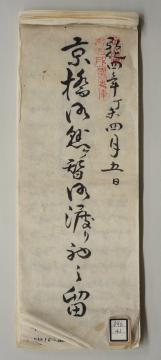 弘化四年丁未四月五日
京橋御懸ヶ替御渡り初之留